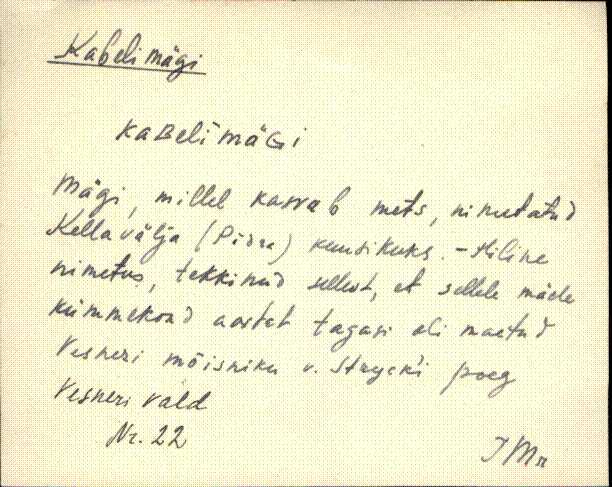 Kabelimägi
KaBelimäGi
Mägi, millel kasvab mets, nimetatud
Kellavälja (Pidra) kuusikuks. - Hiline
nimetus, tekkinud sellest, et sellele mäele
kümmekond aastat tagasi oli maetud
Vesneri mõisniku v. Stryck'i poeg
Vesneri vald
Nr. 22